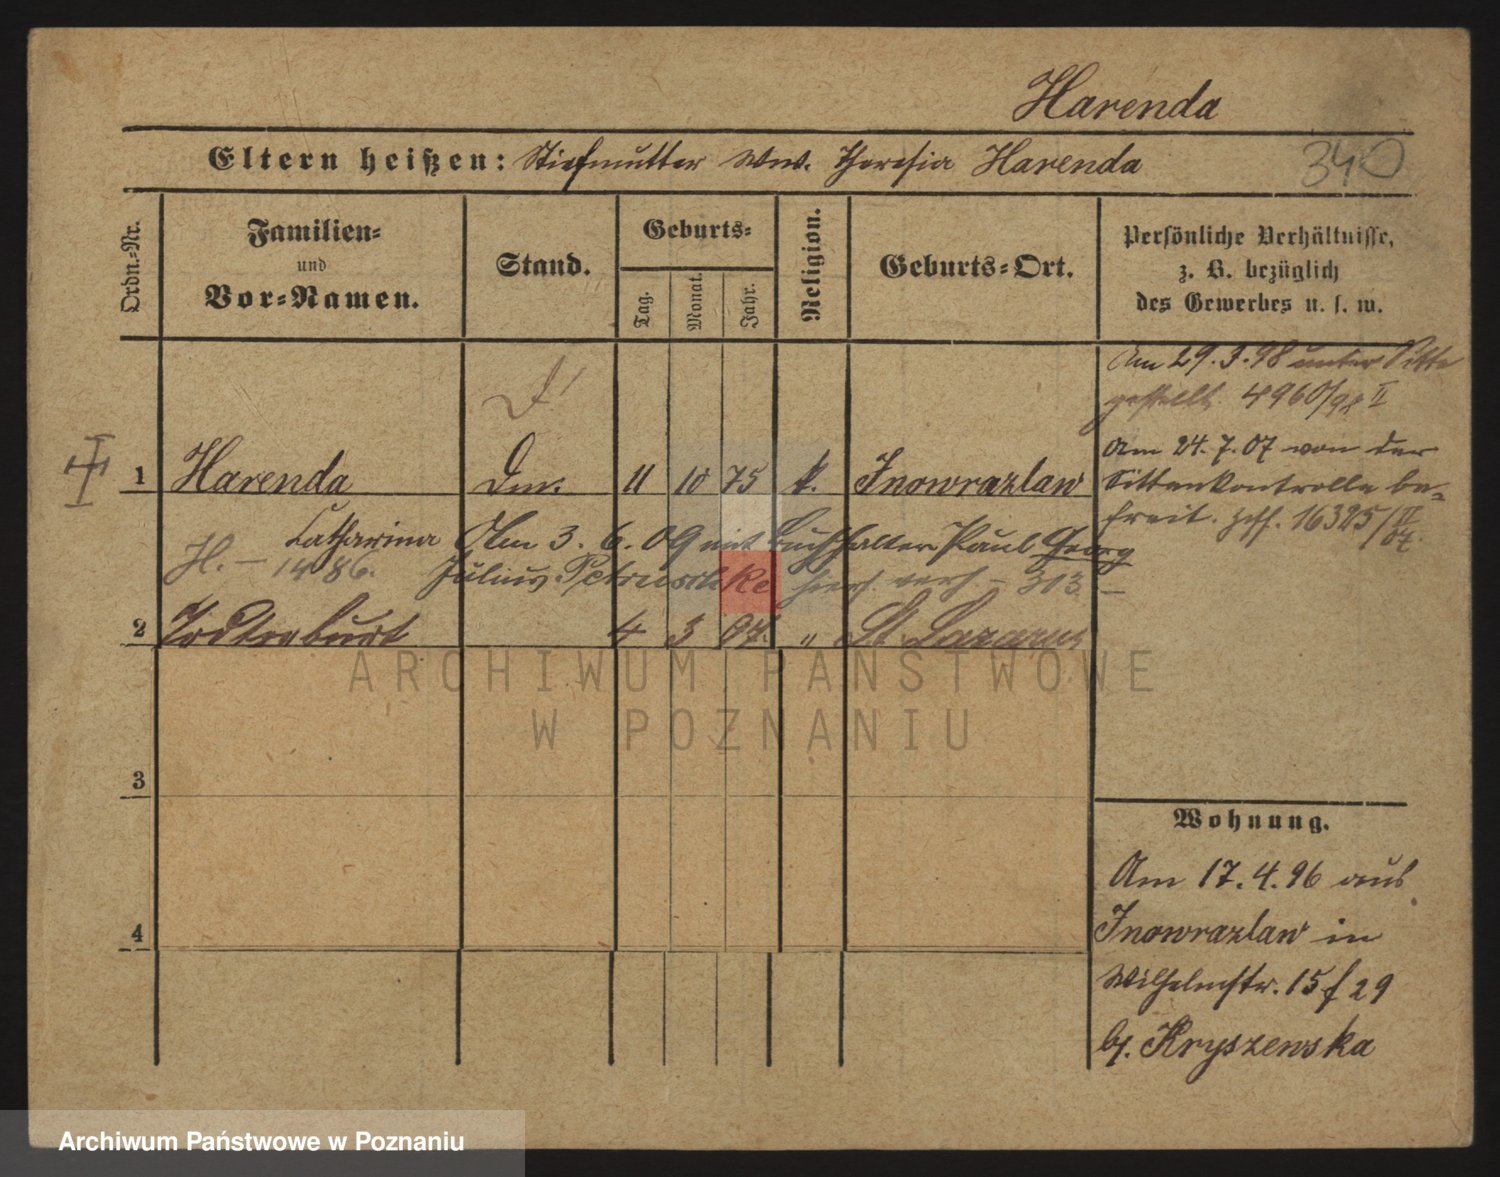 Harenda
Eltern heißen: Stiefmutter Ww. Theresia Harenda
340
Ordn.-Nr.
Familien-
und
Vor-Namen.
Stand.
Geburts-
Tag.
Monat.
Jahr.
Religion.
Geburts-Ort.
Persönliche Verhältnisse,
z. B. bezüglich
des Gewerbes u. s. w.
Am 29.3.98 unter Sitte
gestellt. 4960/98 II
1 Harenda 11 10 75 k. Inowrazlaw
Am 24.7.07 von der
Sittenkontrolle be-
freit. 16325/
Catharina Am 3.6.09 mit Buchhalter Paul Georg
H. – 1486. Julius Petruschke hier verh. – 313 –
2 Todtgeburt 4 3 07. " St. Lazarus
ARCHIWUM PAŃSTWOWE
W POZNANIU
3
4
Wohnung.
Am 17.4.96 aus
Inowrazlaw in
Wilhelmstr. 15 f 29
by. Kryszewska
Archiwum Państwowe w Poznaniu